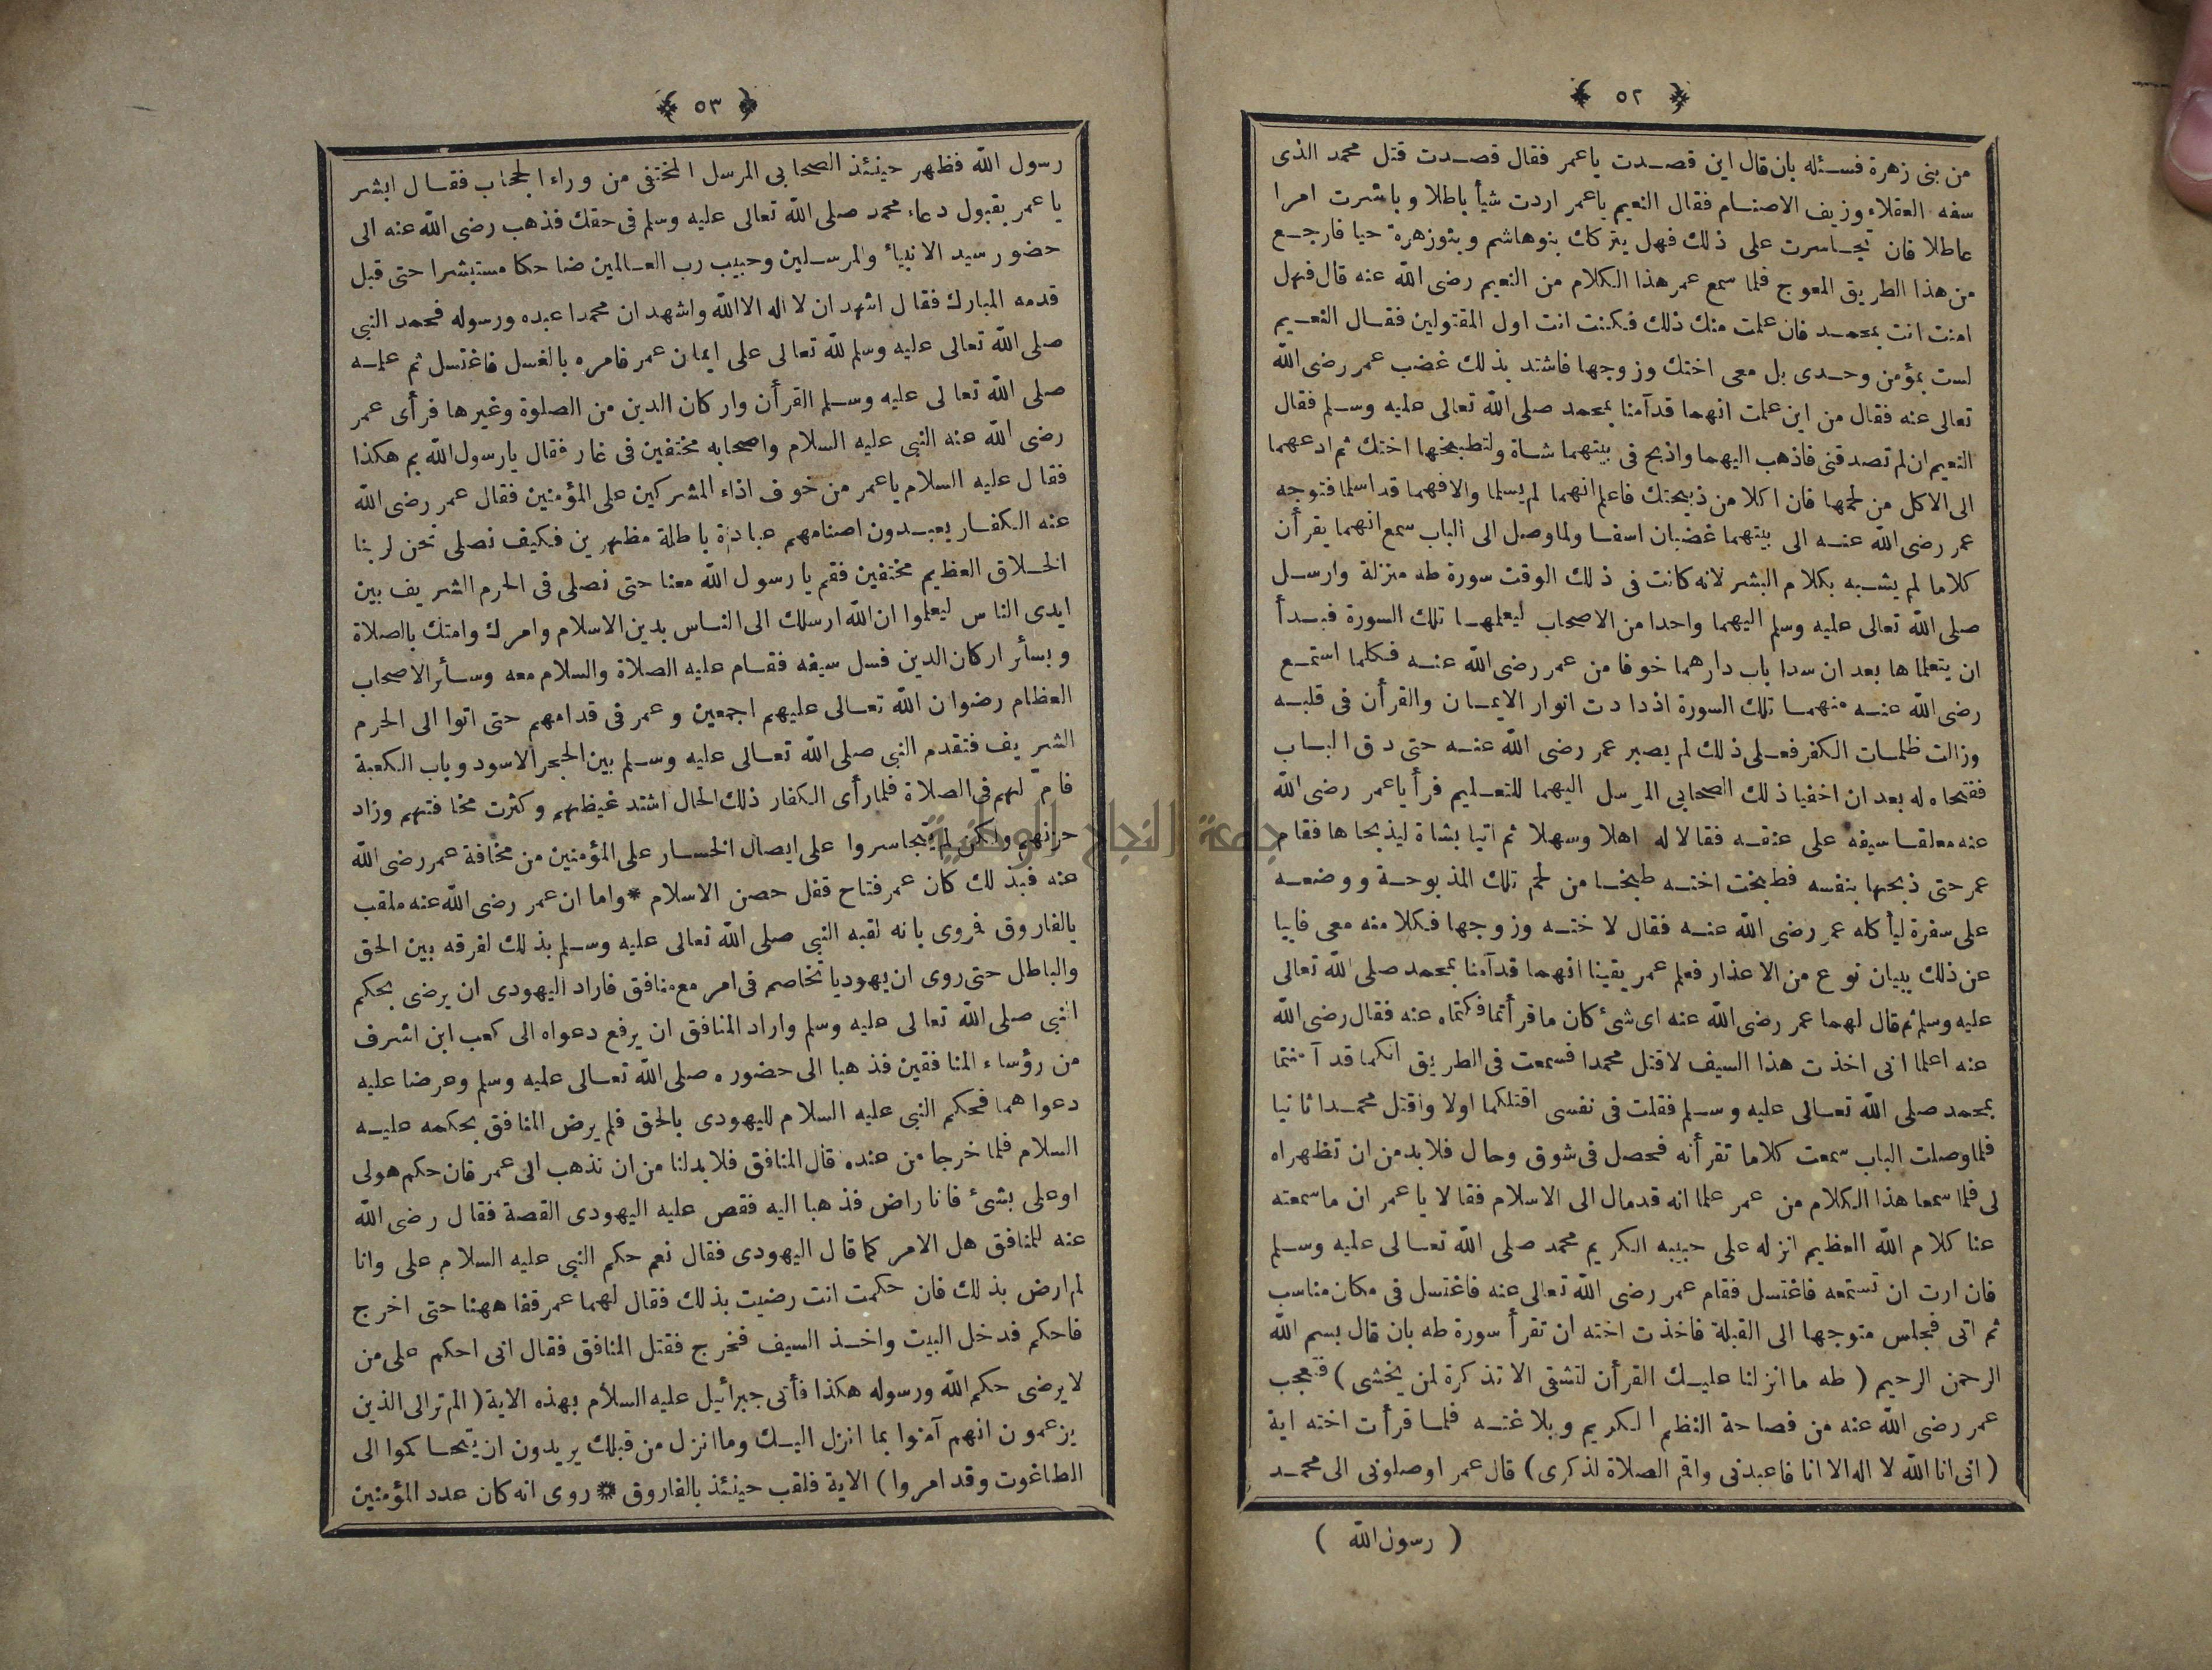 ﴿ ٥٢ ﴾
من بنى زهرة فسـئله بان قال اين قصـدت ياعمر فقال قصـدت قتل محمد الذى
سفه العقلاء وزيف الاصنام فقال النعيم ياعمر اردت شيأ باطلا وباشرت امرا
عاطلا فان تجاسرت على ذلك فهل يتركك بنوهاشم وبنوزهرة حيا فارجع
من هذا الطريق المعوج فلما سمع عمر هذا الكلام من النعيم رضى الله عنه قال فهل
امنت انت بمحمد فان علمت منك ذلك فكنت انت اول المقتولين فقال النعيم
لست بمؤمن وحدى بل معى اختك وزوجها فاشتد بذلك غضب عمر رضى الله
تعالى عنه فقال من اين علمت انهما قدآمنا بمحمد صلى الله تعالى عليه وسلم فقال
النعيم ان لم تصدقنى فاذهب اليهما واذبح فى بيتهما شاة ولتطبخها اختك ثم ادعهما
الى الاكل من لحمها فان اكلا من ذبيحتك فاعلم انهما لم يسلما والا فهما قد اسلما فتوجه
عمر رضى الله عنه الى بيتهما غضبان اسفا ولما وصل الى الباب سمع انهما يقرأن
كلاما لم يشبه بكلام البشر لانه كانت فى ذلك الوقت سورة طه منزلة وارسل
صلى الله تعالى عليه وسلم اليهما واحدا من الاصحاب ليعلمهـا تلك السورة فبدأ
ان يتعلماها بعد ان سدا باب دارهما خوفا من عمر رضى الله عنه فكلما استمع
رضى الله عنه منهما تلك السورة اذدادت انوار الايمان والقرأن فى قلبه
وزالت ظلمات الكفر فعلى ذلك لم يصبر عمر رضى الله عنه حتى دق الباب
ففتحاه له بعد ان اخفيا ذلك الصحابى المرسل اليهما للتعليم فرأيا عمر رضى الله
عنه معلقا سيفه على عنقه فقالا له اهلا وسهلا ثم اتيا بشاة ليذبحاها فقام
عمر حتى ذبحها بنفسه فطبخت اخته طبخا من لحم تلك المذبوحة ووضعه
على سفرة ليأكله عمر رضى الله عنه فقال لاخته وزوجها فكلا منه معى فابيا
عن ذلك ببيان نوع من الاعذار فعلم عمر يقينا انهما قدآمنا بمحمد صلى الله تعالى
عليه وسلم ثم قال لهما عمر رضى الله عنه اى شئ كان ما قرأتما فكتماه عنه فقال رضى الله
عنه اعلما انى اخذت هذا السيف لاقتل محمدا فسمعت فى الطريق انكما قد آمنتما
بمحمد صلى الله تعالى عليه وسلم فقلت فى نفسى اقتلكما اولا واقتل محمدا ثانيا
فلما وصلت الباب سمعت كلاما تقرأنه فحصل فى شوق وحال فلابد من ان تظهراه
لى فلما سمعا هذا الكلام من عمر علما انه قدمال الى الاسلام فقالا ياعمر ان ماسمعته
عنا كلام الله العظيم انزله على حبيبه الكريم محمد صلى الله تعالى عليه وسلم
فان ارت ان تستمعه فاغتسل فقام عمر رضى الله تعالى عنه فاغتسل فى مكان مناسب
ثم اتى فجلس متوجها الى القبلة فاخذت اخته ان تقرأ سورة طه بان قال بسم الله
الرحمن الرحيم ( طه ما انزلنا عليك القرأن لتشقى الا تذكرة لمن يخشى ) فتعجب
عمر رضى الله عنه من فصاحة النظم الكريم وبلاغته فلما قرأت اخته اية
( انى انا الله لا اله الا انا فاعبدنى واقم الصلاة لذكرى ) قال عمر اوصلونى الى محمد
( رسول الله )
﴿ ٥٣ ﴾
رسول الله فظهر حينئذ الصحابى المرسل المختفى من وراء الحجاب فقال ابشر
ياعمر بقبول دعاء محمد صلى الله تعالى عليه وسلم فى حقك فذهب رضى الله عنه الى
حضور سيد الانبياء والمرسلين وحبيب رب العالمين ضاحكا مستبشرا حتى قبل
قدمه المبارك فقال اشهد ان لا اله الا الله واشهد ان محمدا عبده ورسوله فحمد النبى
صلى الله تعالى عليه وسلم لله تعالى على ايمان عمر فامره بالغسل فاغتسل ثم علمه
صلى الله تعالى عليه وسلم القرأن واركان الدين من الصلوة وغيرها فرأى عمر
رضى الله عنه النبى عليه السلام واصحابه مختفين فى غار فقال يارسول الله بم هكذا
فقال عليه السلام ياعمر من خوف اذاء المشركين على المؤمنين فقال عمر رضى الله
عنه الكفار يعبدون اصنامهم عبادة باطلة مظهرين فكيف نصلى نحن لربنا
الخلاق العظيم مختفين فقم يارسول الله معنا حتى نصلى فى الحرم الشريف بين
ايدى الناس ليعلموا ان الله ارسلك الى الناس بدين الاسلام وامرك وامتك بالصلاة
وبسأر اركان الدين فسل سيفه فقام عليه الصلاة والسلام معه وسأر الاصحاب
العظام رضوان الله تعالى عليهم اجمعين وعمر فى قدامهم حتى اتوا الى الحرم
الشريف فتقدم النبى صلى الله تعالى عليه وسلم بين الحجر الاسود وباب الكعبة
فامّ لهم فى الصلاة فلما رأى الكفار ذلك الحال اشتد غيظهم وكثرت مخافتهم وزاد
حزنهم ولكن لم يتجاسروا على ايصال الخسار على المؤمنين من مخافة عمر رضى الله
عنه فبذلك كان عمر فتاح قفل حصن الاسلام * واما ان عمر رضى الله عنه ملقب
بالفاروق فروى بانه لقبه النبى صلى الله تعالى عليه وسلم بذلك لفرقه بين الحق
والباطل حتى روى ان يهوديا تخاصم فى امر مع منافق فاراد اليهودى ان يرضى بحكم
النبى صلى الله تعالى عليه وسلم واراد المنافق ان يرفع دعواه الى كعب ابن اشرف
من رؤساء المنافقين فذهبا الى حضوره صلى الله تعالى عليه وسلم وعرضا عليه
دعواهما فحكم النبى عليه السلام لليهودى بالحق فلم يرض المنافق بحكمه عليه
السلام فلما خرجا من عنده قال المنافق فلابدلنا من ان نذهب الى عمر فان حكم هولى
اوعلى بشئ فانا راض فذهبا اليه فقص عليه اليهودى القصة فقال رضى الله
عنه للمنافق هل الامر كما قال اليهودى فقال نعم حكم النبى عليه السلام على وانا
لم ارض بذلك فان حكمت انت رضيت بذلك فقال لهما عمر قفا ههنا حتى اخرج
فاحكم فدخل البيت واخذ السيف فخرج فقتل المنافق فقال انى احكم على من
لايرضى حكم الله ورسوله هكذا فأتى جبرائيل عليه السلام بهذه الاية ( الم تر الى الذين
يزعمون انهم آمنوا بما انزل اليك وما انزل من قبلك يريدون ان يتحاكموا الى
الطاغوت وقد امروا ) الاية فلقب حينئذ بالفاروق * روى انه كان عدد المؤمنين
جامعة النجاح الوطنية